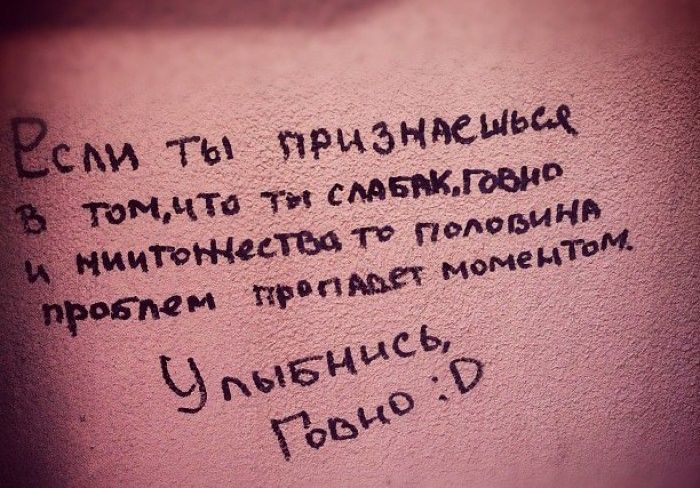 Если ты признаешься
в том, что ты слабак, говно
и ниитожжества то половина
проблем пропадет моментом.
Улыбнись,
Говно :D